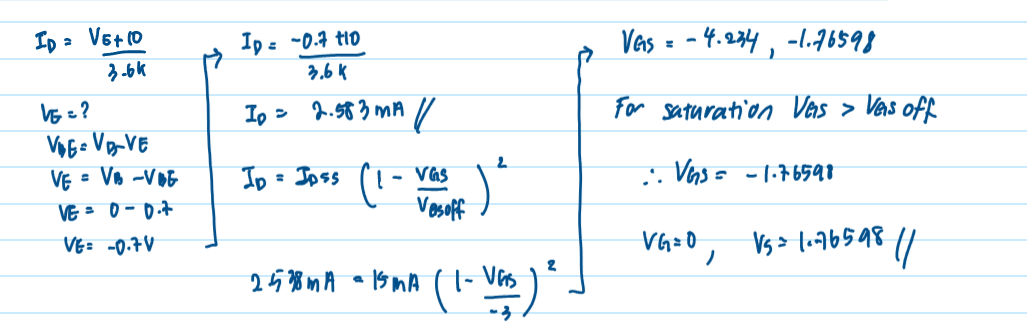 ID = VE+10 / 3.6k
VE = ?
VBE = VB-VE
VE = VB - VBE
VE = 0 - 0.7
VE = -0.7V
ID = -0.7+10 / 3.6k
ID = 2.583mA //
ID = IDSS (1 - VGS / VGSoff)²
2.578mA = 15mA (1 - VGS / -3)²
VGS = -4.234, -1.76598
For saturation VGS > VGS off
∴ VGS = -1.76598
VG=0, VS = 1.76598 //